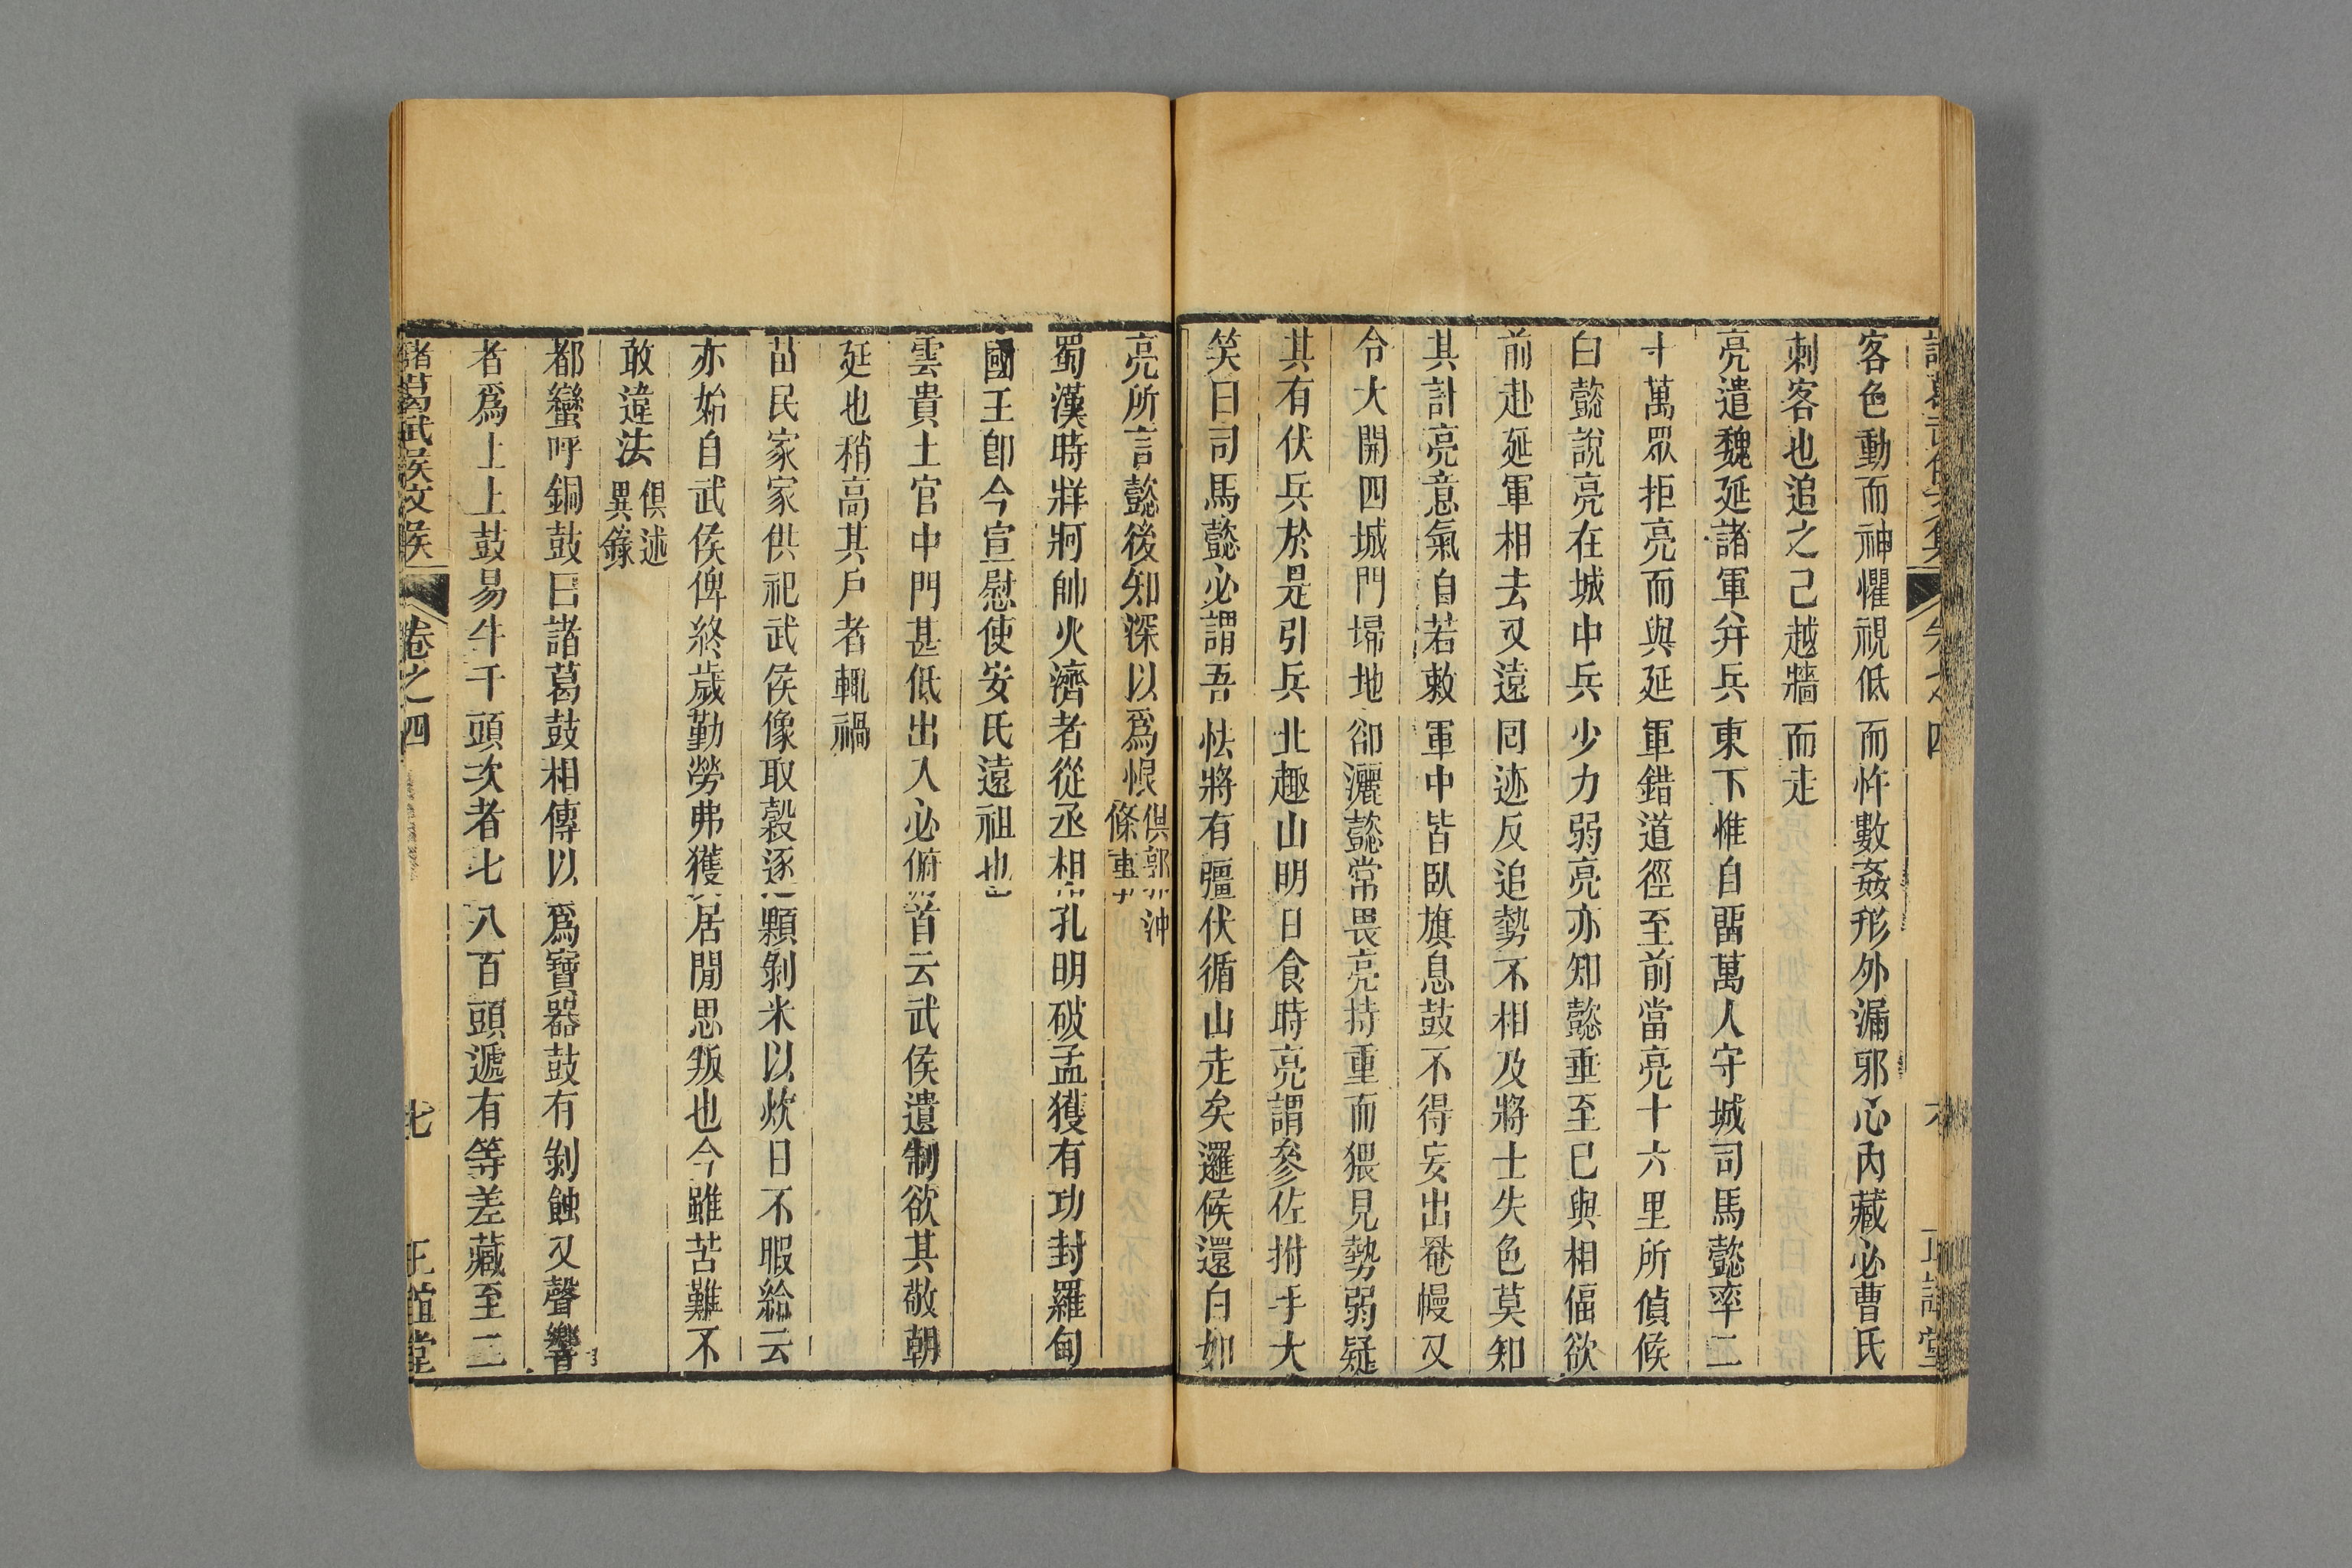 客色動而神懼視低而忤數姦形外漏邪心內藏必曹氏
刺客也追之已越牆而走
亮遣魏延諸軍并兵東下惟自畱萬人守城司馬懿率二
十萬眾拒亮而與延軍錯道徑至前當亮十六里所偵候
白懿說亮在城中兵少力弱亮亦知懿垂至已與相偪欲
前赴延軍相去又遠囘迹反追勢不相及將士失色莫知
其計亮意氣自若敕軍中皆臥旗息鼓不得妄出菴幔又
令大開四城門埽地卻灑懿常畏亮持重而猥見勢弱疑
其有伏兵於是引兵北趣山明日食時亮謂參佐拊手大
笑曰司馬懿必謂吾怯將有彊伏循山走矣邏候還白如
亮所言懿後知深以爲恨俱郭沖
條事
蜀漢時牂牁帥火濟者從丞相孔明破孟獲有功封羅甸
國王卽今宣慰使安氏遠祖也
雲貴土官中門甚低出入必俯首云武侯遺制欲其敬朝
廷也稍高其戶者輒禍
苗民家家供祀武侯像取穀逐顆剝米以炊日不暇給云
亦始自武侯俾終歲勤勞弗獲居閒思叛也今雖苦難不
敢違法俱述
異錄
都蠻呼銅鼓曰諸葛鼓相傳以爲寶器鼓有剝蝕又聲響
者爲上上鼓易牛千頭次者七八百頭遞有等差藏至二
諸葛武侯文集 卷之四 七 正誼堂